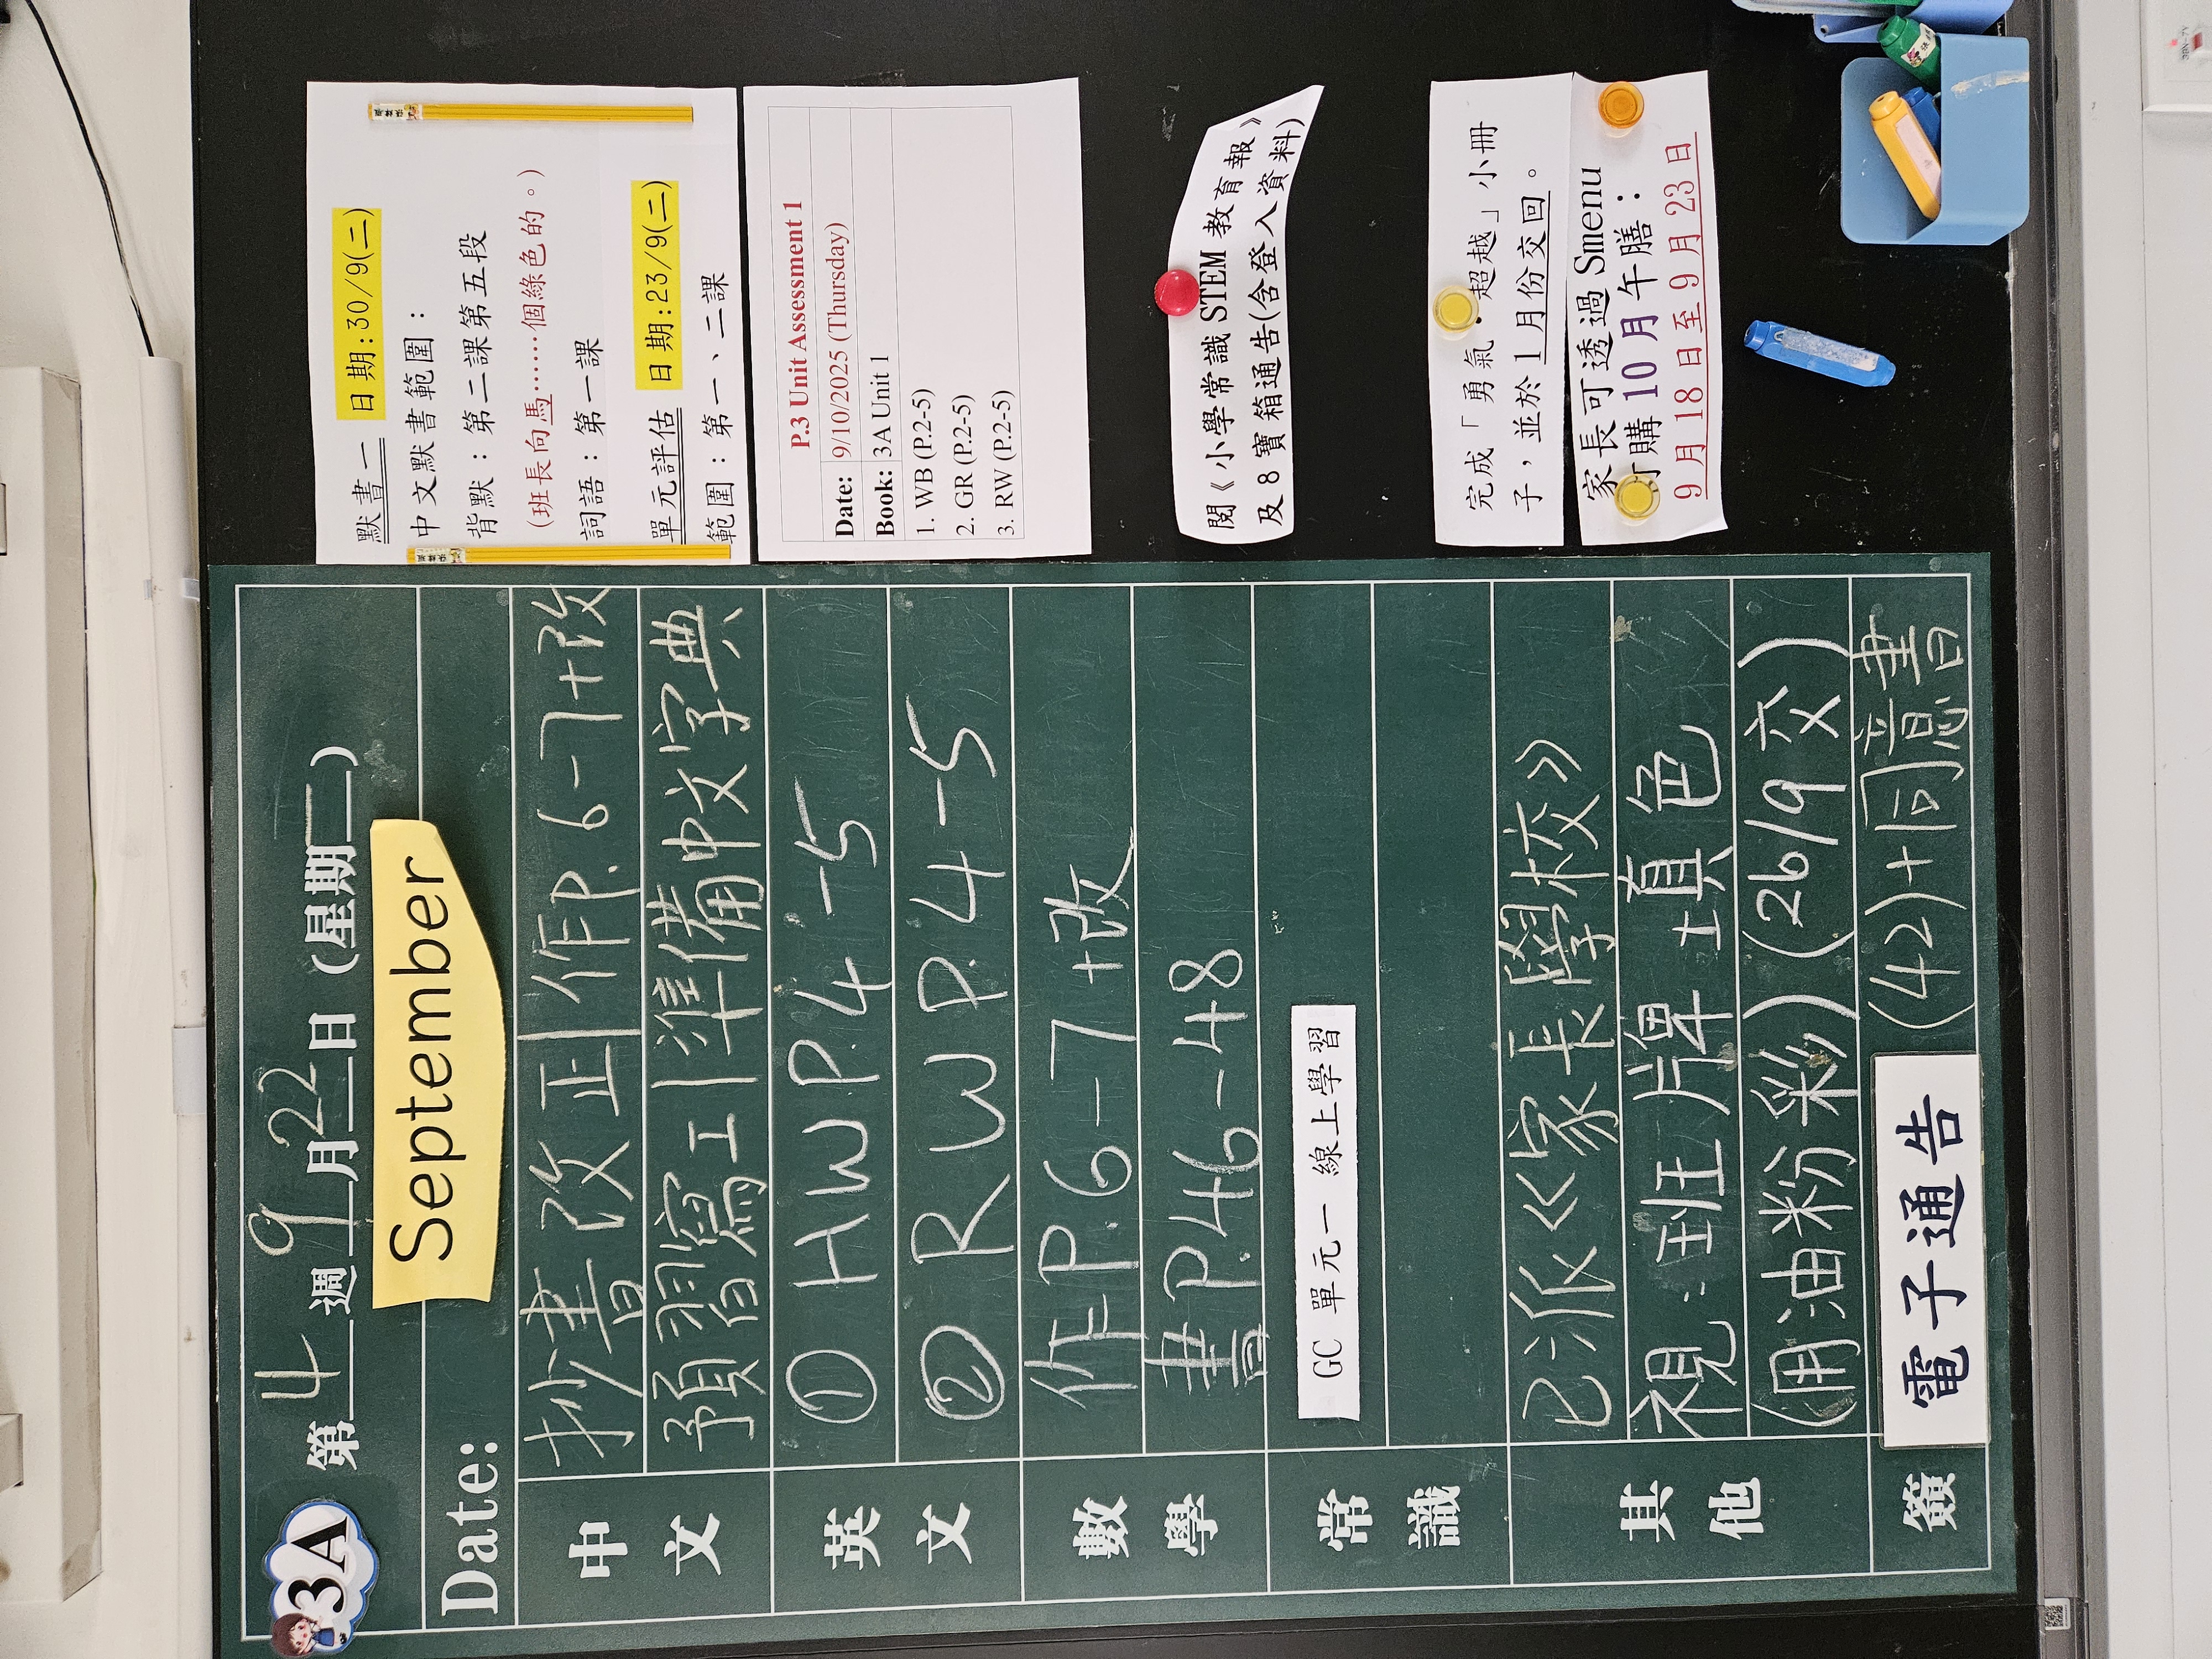 3A
第 4 週 9 月 22 日 (星期 二)
September
Date:
中文
抄書改正|作P.6-7+改
預習寫工|準備中文字典
英文
① HW P.4-5
② RW P.4-5
數學
作P.6-7+改
書P.46-48
常識
GC 單元一 線上學習
其他
已派《家長學校》
視:班牌填色
(用油粉彩)(26/9交)
簽
電子通告 (42)+同意書
默書一 日期:30/9(二)
中文默書範圍:
背默:第二課第五段
(班長向馬……個綠色的。)
詞語:第一課
單元評估 日期:23/9(二)
範圍:第一、二課
P.3 Unit Assessment 1
Date: 9/10/2025 (Thursday)
Book: 3A Unit 1
1. WB (P.2-5)
2. GR (P.2-5)
3. RW (P.2-5)
閱《小學常識 STEM 教育報》
及 8 寶箱通告(含登入資料)
完成「勇氣.超越」小冊
子,並於 1 月份交回。
家長可透過 Smenu
訂購 10 月午膳:
9 月 18 日至 9 月 23 日